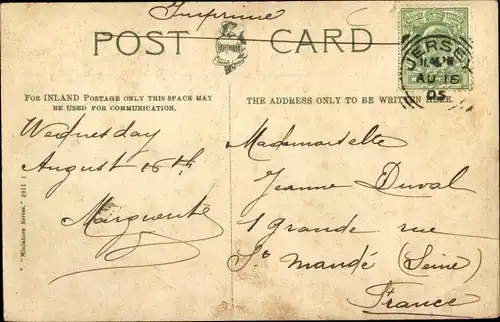 Imprimé
POST CARD
HARTMANN
JERSEY
AU 16
05
FOR INLAND POSTAGE ONLY THIS SPACE MAY
BE USED FOR COMMUNICATION.
THE ADDRESS ONLY TO BE WRITTEN HERE.
Wednesday
August 16th
Marguerite
Mademoiselle
Jeanne Duval
1 grande rue
St Mandé (Seine)
France
"Miniature Series." 2811